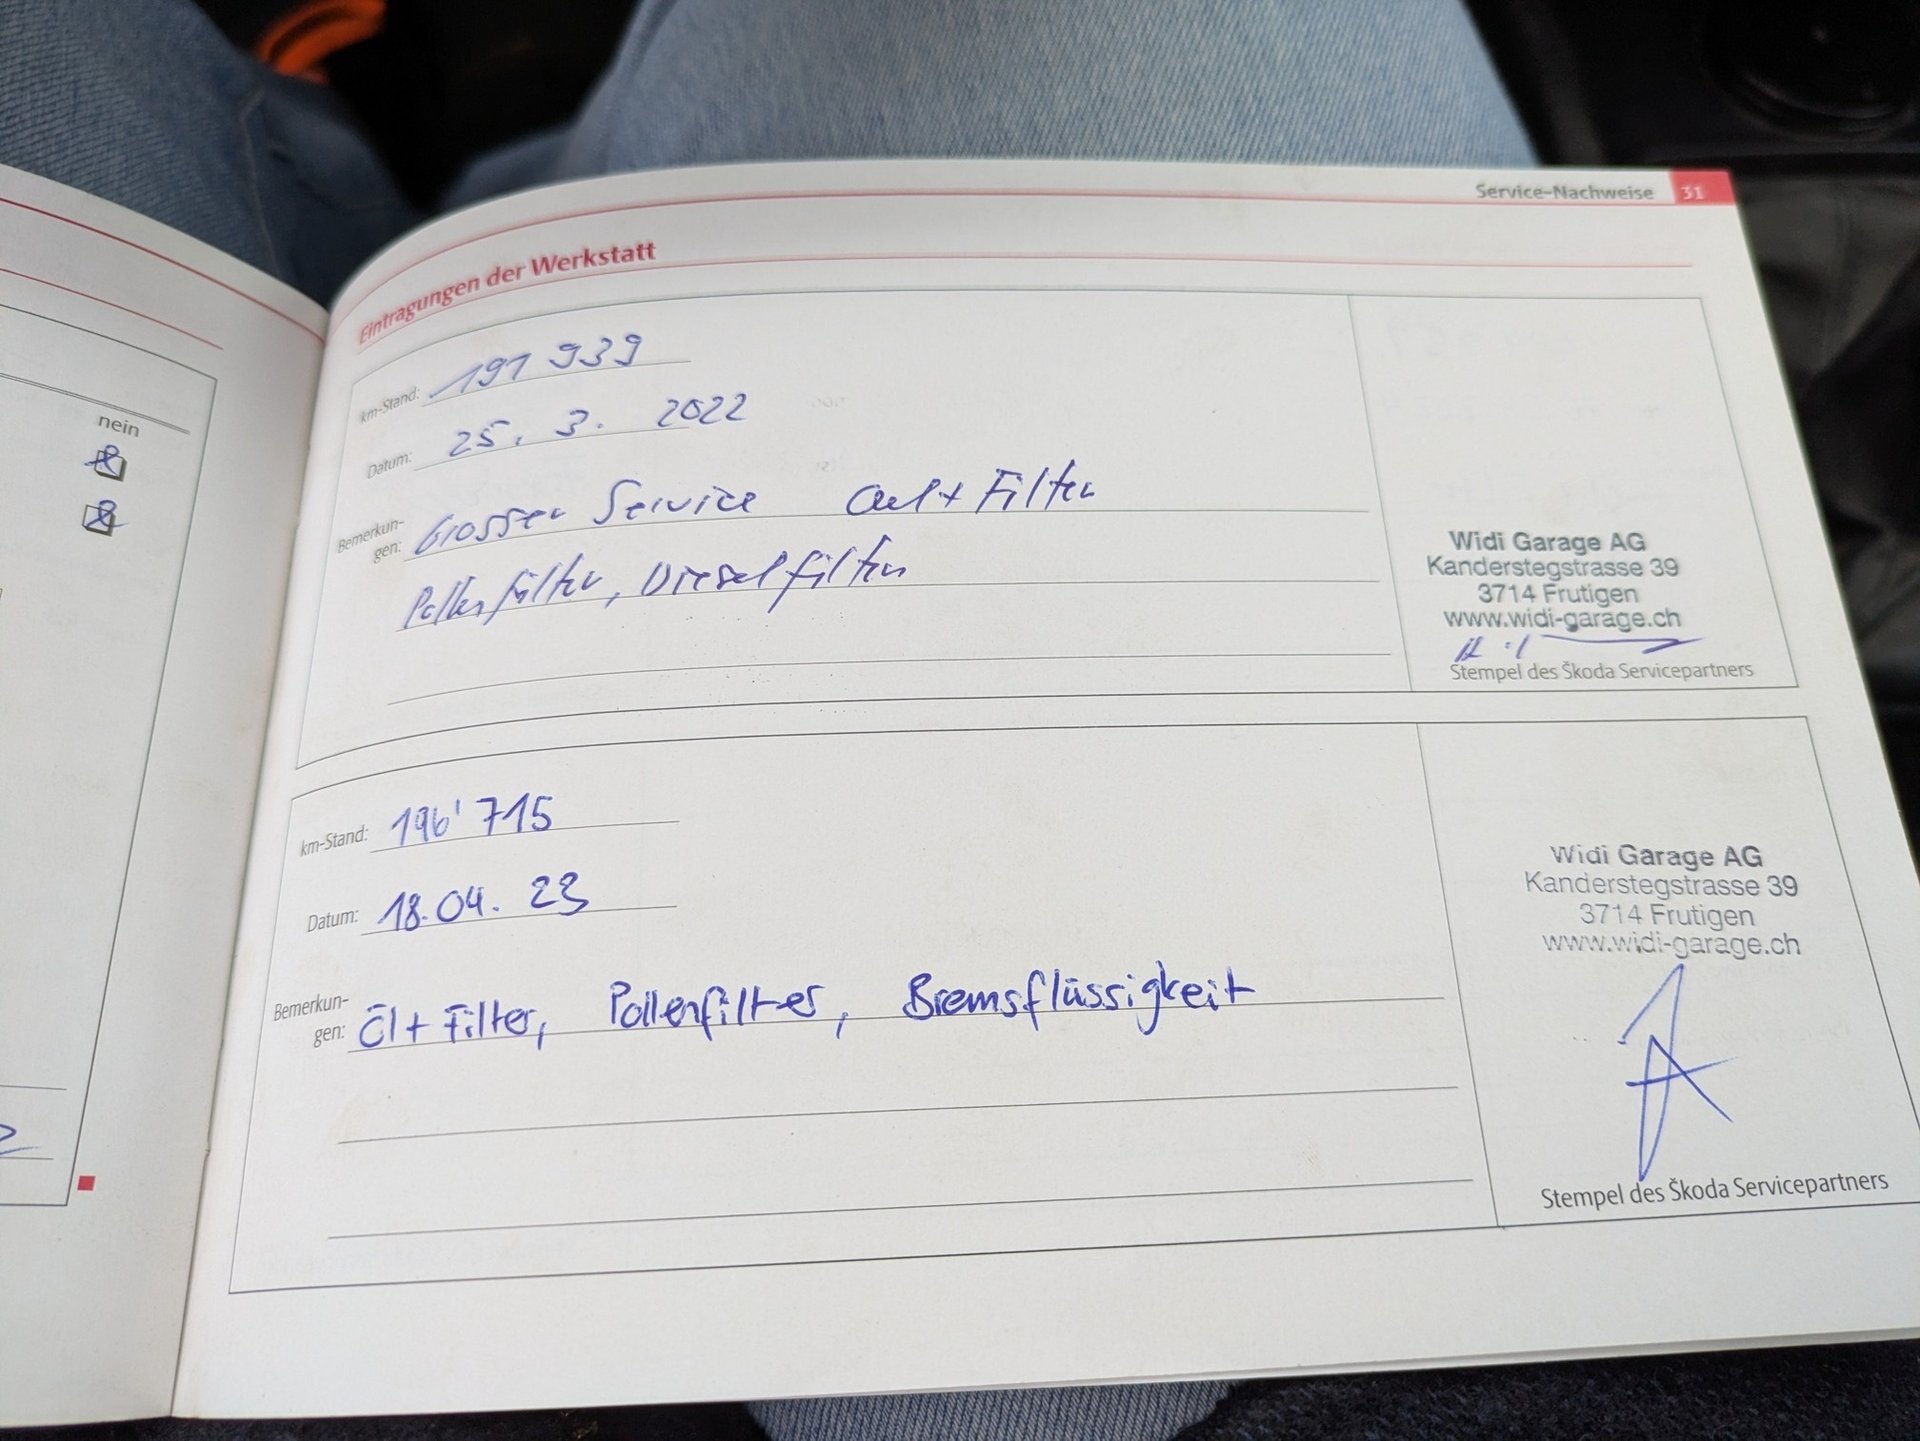 nein
Service-Nachweise 31
Eintragungen der Werkstatt
km-Stand: 191 939
Datum: 25. 3. 2022
Bemerkun-
gen: Grosser Service Oel + Filter
Pollenfilter, Dieselfilter
Widi Garage AG
Kanderstegstrasse 39
3714 Frutigen
www.widi-garage.ch
Stempel des Škoda Servicepartners
km-Stand: 196'715
Datum: 18.04.23
Bemerkun-
gen: Öl + Filter, Pollenfilter, Bremsflüssigkeit
Widi Garage AG
Kanderstegstrasse 39
3714 Frutigen
www.widi-garage.ch
Stempel des Škoda Servicepartners